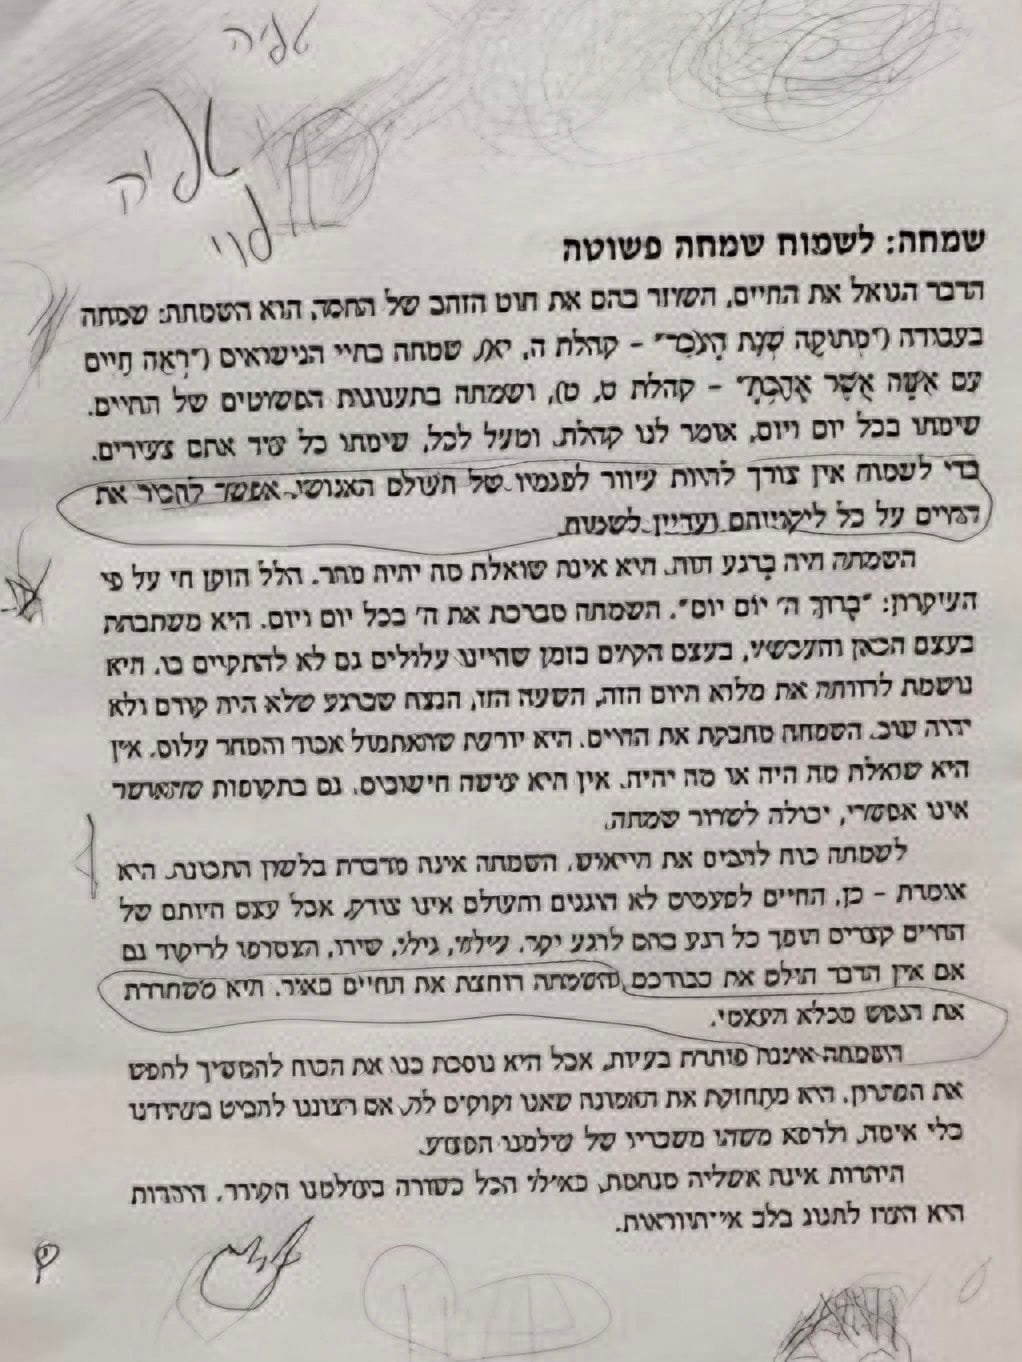 אליה
אליה
לוי
שמחה: לשמוח שמחה פשוטה
הדבר הגואל את החיים, השוזר בהם את חוט הזהב של החסד, הוא השמחה: שמחה
בעבודה ("מְתוּקָה שְׁנַת הָעֹבֵד" – קהלת ה, יא), שמחה בחיי הנישואים ("רְאֵה חַיִּים
עִם אִשָּׁה אֲשֶׁר אָהַבְתָּ" – קהלת ט, ט), ושמחה בתענוגות הפשוטים של החיים.
שימחו בכל יום ויום, אומר לנו קהלת. ומעל לכל, שימחו כל עוד אתם צעירים.
כדי לשמוח אין צורך להיות עיוור לפגמיו של העולם האנושי. אפשר להכיר את
החיים על כל ליקוייהם ועדיין לשמוח.
השמחה חיה ברגע הזה. היא אינה שואלת מה יהיה מחר. הלל הזקן חי על פי
העיקרון: "בָּרוּךְ ה' יוֹם יוֹם". השמחה מברכת את ה' בכל יום ויום. היא משתבחת
בעצם הכאן והעכשיו, בעצם הקיום בזמן שהיינו עלולים גם לא להתקיים בו. היא
נושמת לרווחה את מלוא היום הזה, השעה הזו, הנצח שברגע שלא היה קודם ולא
יהיה שוב. השמחה מחבקת את החיים. היא יודעת שהאתמול אבוד והמחר עלום. אין
היא שואלת מה היה או מה יהיה. אין היא עושה חישובים. גם בתקופות שהאושר
אינו אפשרי, יכולה לשרור שמחה.
לשמחה כוח להביס את הייאוש. השמחה אינה מדברת בלשון התבונה. היא
אומרת – כן, החיים לפעמים לא הוגנים והעולם אינו צודק, אבל עצם היותם של
החיים קצרים הופך כל רגע בהם לרגע יקר. עילזו, גילו, שירו, הצטרפו לריקוד גם
אם אין הדבר הולם את כבודכם. השמחה רוחצת את החיים באור. היא משחררת
את הנפש מכלא העצמי.
השמחה איננה פותרת בעיות, אבל היא נוסכת בנו את הכוח להמשיך לחפש
את הפתרון. היא מתחזקת את האמונה שאנו זקוקים לה, אם רצוננו להביט בעתידנו
בלי אימה, ולרפא משהו משבריו של עולמנו הפצוע.
היהדות אינה אשליה מנחמת, כאילו הכל כשורה בעולמנו הקודר. היהדות
היא העוז לחגוג בלב אי־הוודאות.